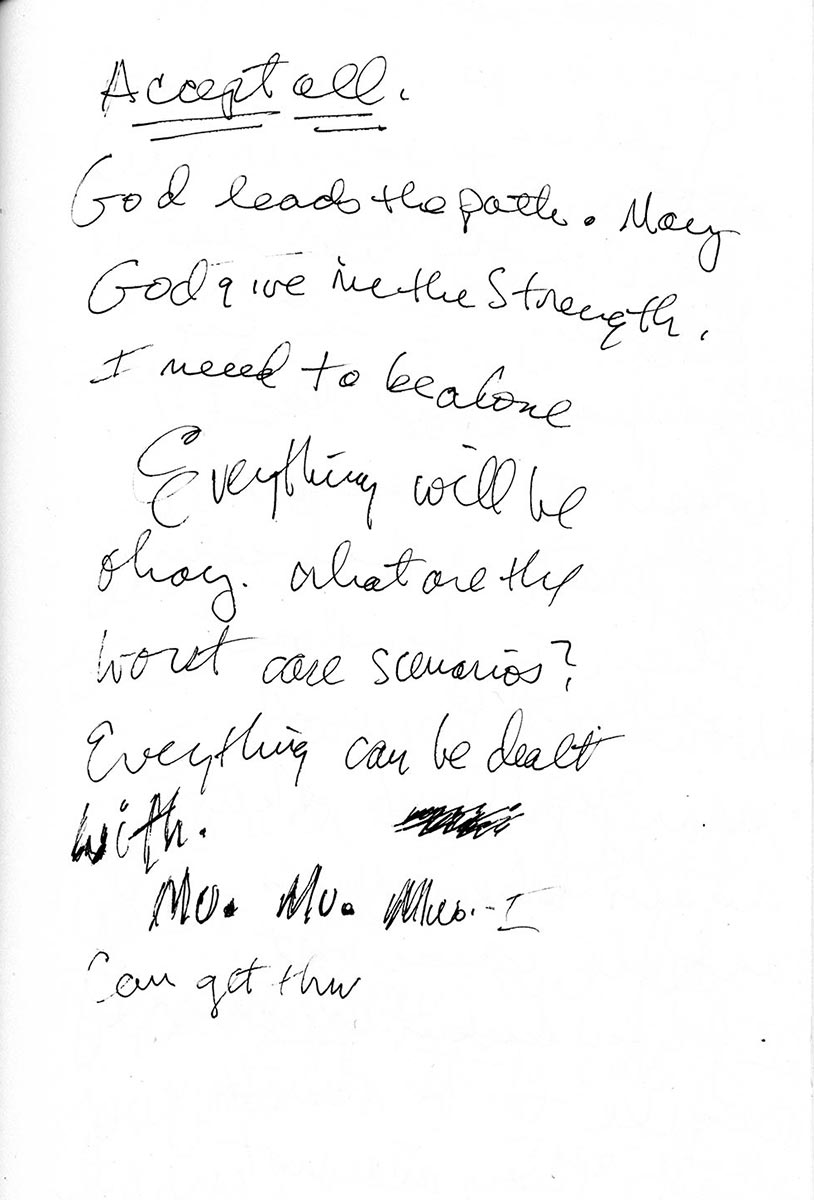 Accept all.
God leads the path. May
God give me the Strength.
I need to be alone
Everything will be
okay. what are the
worst case scenarios?
Everything can be dealt
with.
Mu. Mu. I
Can get thru